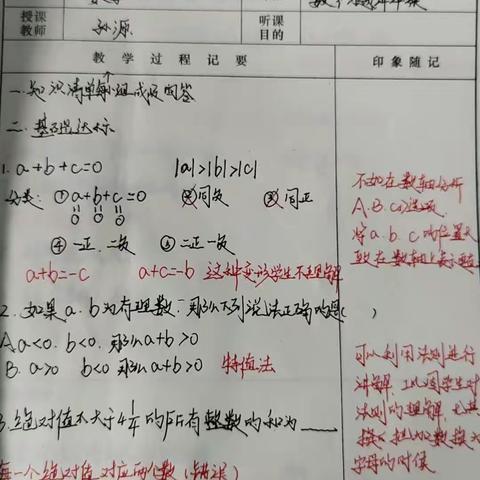 授课教师
孙源
听课目的
教 学 过 程 记 要
印 象 随 记
一、知识清单
二、基础达标
1. a+b+c=0 |a|>|b|>|c|
分类：① a+b+c=0 ② 同负 ③ 同正
0 0 0
④ 一正、二负 ⑤ 二正一负
a+b=-c a+c=-b 这种变形学生不理解
2. 如果a、b为有理数，那么下列说法正确的是( )
A. a<0. b<0. 那么a+b>0
B. a>0 b<0 那么a+b>0 特值法
3. 绝对值不大于4 的所有整数的和为
每一个绝对值对应两个数（错误）
不如在数轴分析
A. B. C 选项
将a. b. c 的位置
在数轴上表示
可以利用法则进行
讲解，巩固学生对
法则的理解，尤其
字母的时候